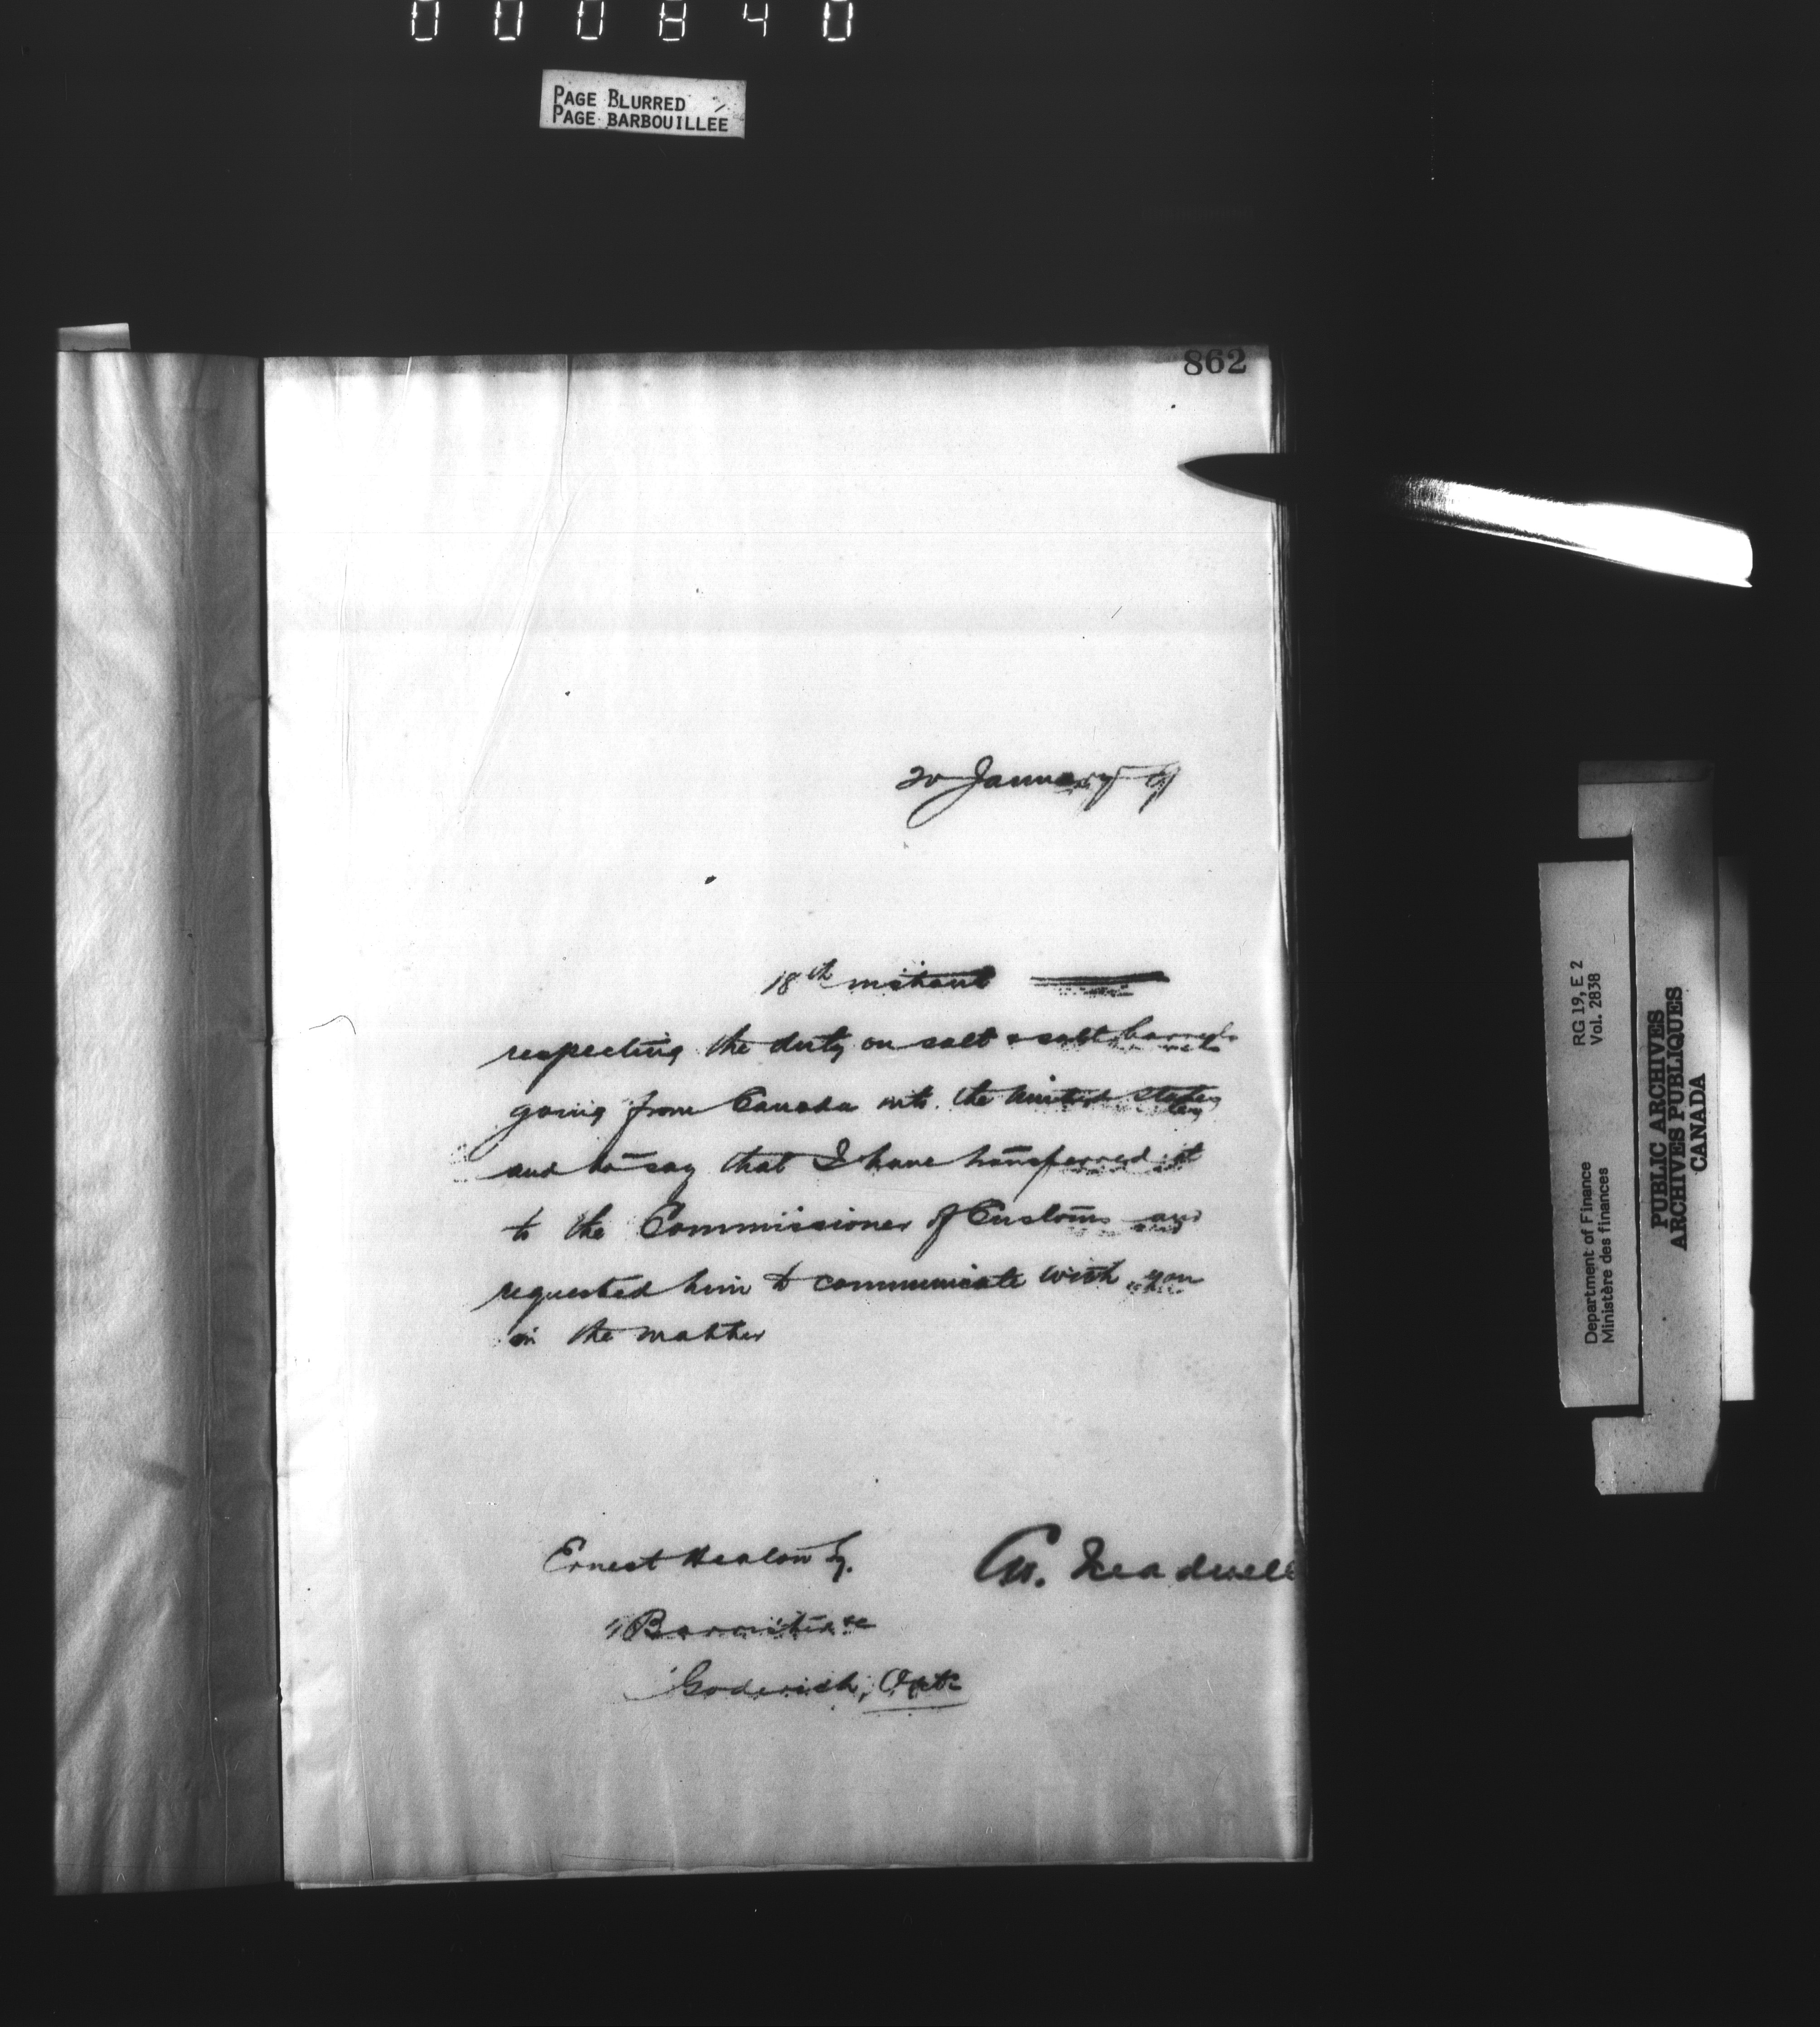 000840
PAGE BLURRED
PAGE BARBOUILLÉE
862
20 January
18th instant
respecting the duty on salt & salt barrels
going from Canada into the United States
and to say that I have transferred it
to the Commissioner of Customs and
requested him to communicate with you
in the matter
Ernest Heaton Esq.
Barrister &c
Goderich, Ont.
RG 19, E 2
Vol. 2838
Department of Finance
Ministère des finances
PUBLIC ARCHIVES
ARCHIVES PUBLIQUES
CANADA